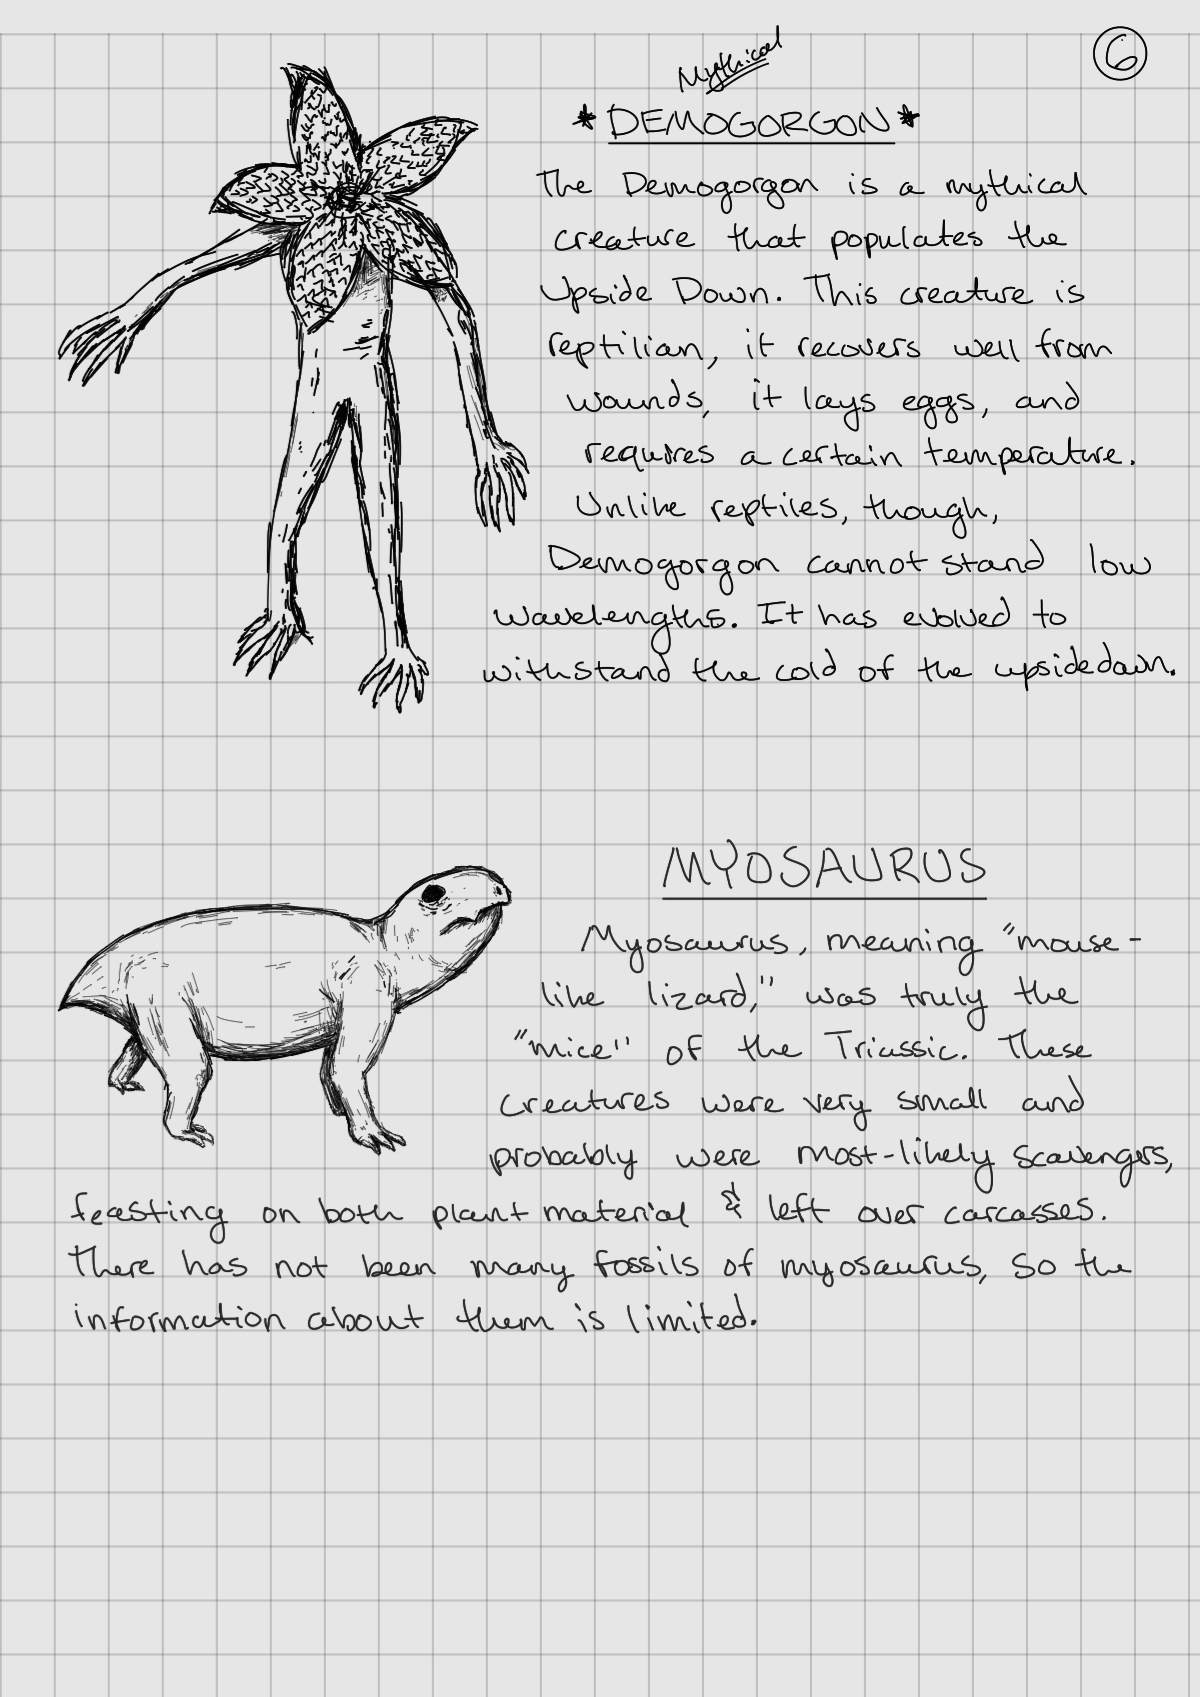 6
Mythical
* DEMOGORGON *
The Demogorgon is a mythical
creature that populates the
Upside Down. This creature is
reptilian, it recovers well from
wounds, it lays eggs, and
requires a certain temperature.
Unlike reptiles, though,
Demogorgon cannot stand low
wavelengths. It has evolved to
withstand the cold of the upsidedown.
MYOSAURUS
Myosaurus, meaning "mouse-
like lizard," was truly the
"mice" of the Triassic. These
creatures were very small and
probably were most-likely scavengers,
feasting on both plant material & left over carcasses.
There has not been many fossils of myosaurus, so the
information about them is limited.